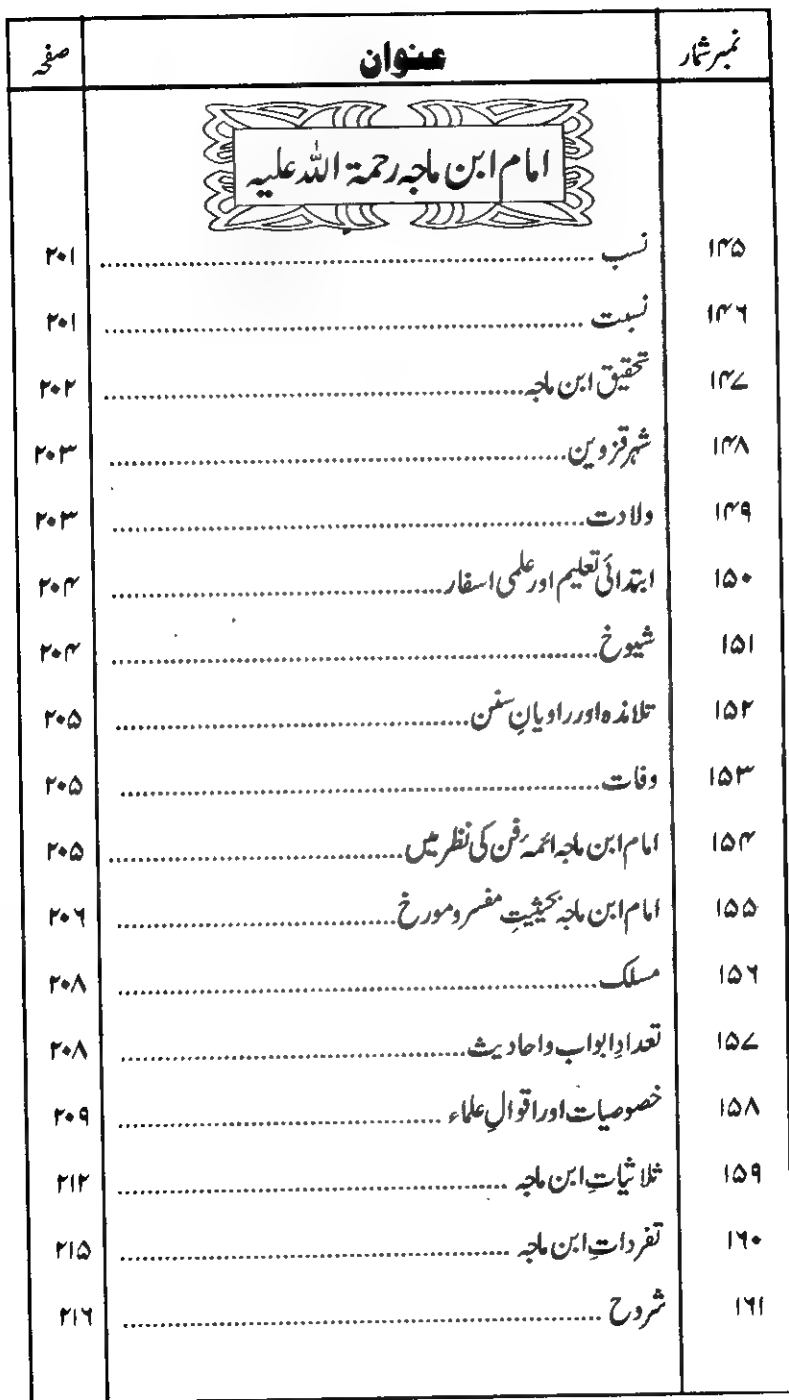 نمبر شمار عنوان صفحہ
امام ابن ماجہ رحمۃ اللہ علیہ
۱۴۵ نسب ........................ ۲۰۱
۱۴۶ نسبت ........................ ۲۰۱
۱۴۷ تحقیق ابن ماجہ ........................ ۲۰۲
۱۴۸ شہر قزوین ........................ ۲۰۳
۱۴۹ ولادت ........................ ۲۰۳
۱۵۰ ابتدائی تعلیم اور علمی اسفار ........................ ۲۰۴
۱۵۱ شیوخ ........................ ۲۰۴
۱۵۲ تلامذہ اور راویانِ سنن ........................ ۲۰۵
۱۵۳ وفات ........................ ۲۰۵
۱۵۴ امام ابن ماجہ ائمہ فن کی نظر میں ........................ ۲۰۵
۱۵۵ امام ابن ماجہ بحیثیتِ مفسر و مورخ ........................ ۲۰۶
۱۵۶ مسلک ........................ ۲۰۸
۱۵۷ تعدادِ ابواب و احادیث ........................ ۲۰۸
۱۵۸ خصوصیات اور اقوالِ علماء ........................ ۲۰۹
۱۵۹ ثلاثیاتِ ابن ماجہ ........................ ۲۱۲
۱۶۰ تفرداتِ ابن ماجہ ........................ ۲۱۵
۱۶۱ شروح ........................ ۲۱۶